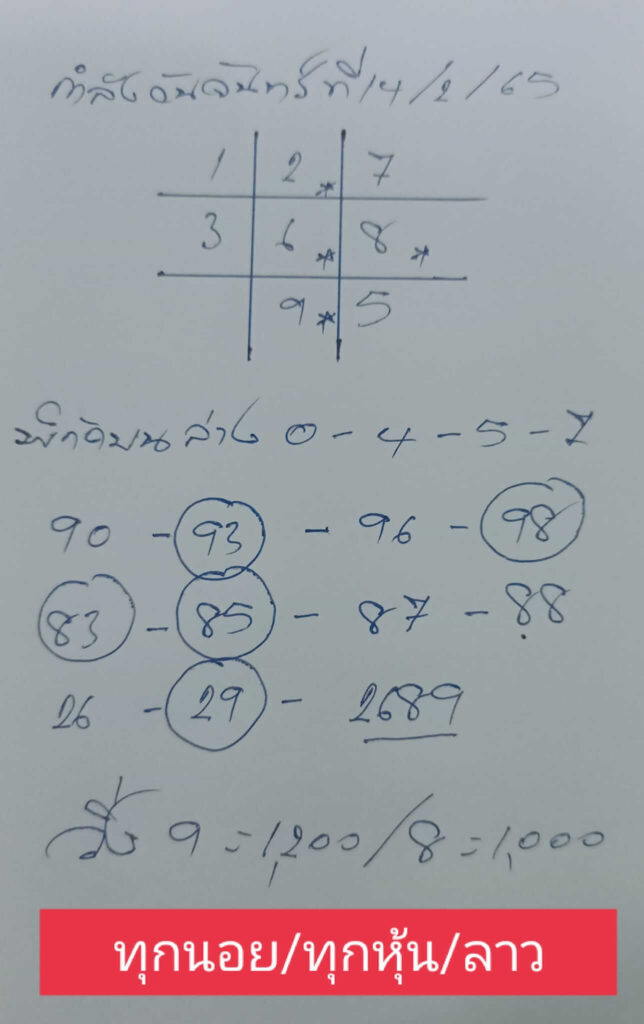 กำลังวันจันทร์ที่ 14/2/65
1 2* 7
3 6* 8*
9* 5
พิกัดบนล่าง 0-4-5-7
90 - 93 - 96 - 98
83 - 85 - 87 - 88
26 - 29 - 2689
วิ่ง 9 = 1,200/8 = 1,000
ทุกนอย/ทุกหุ้น/ลาว